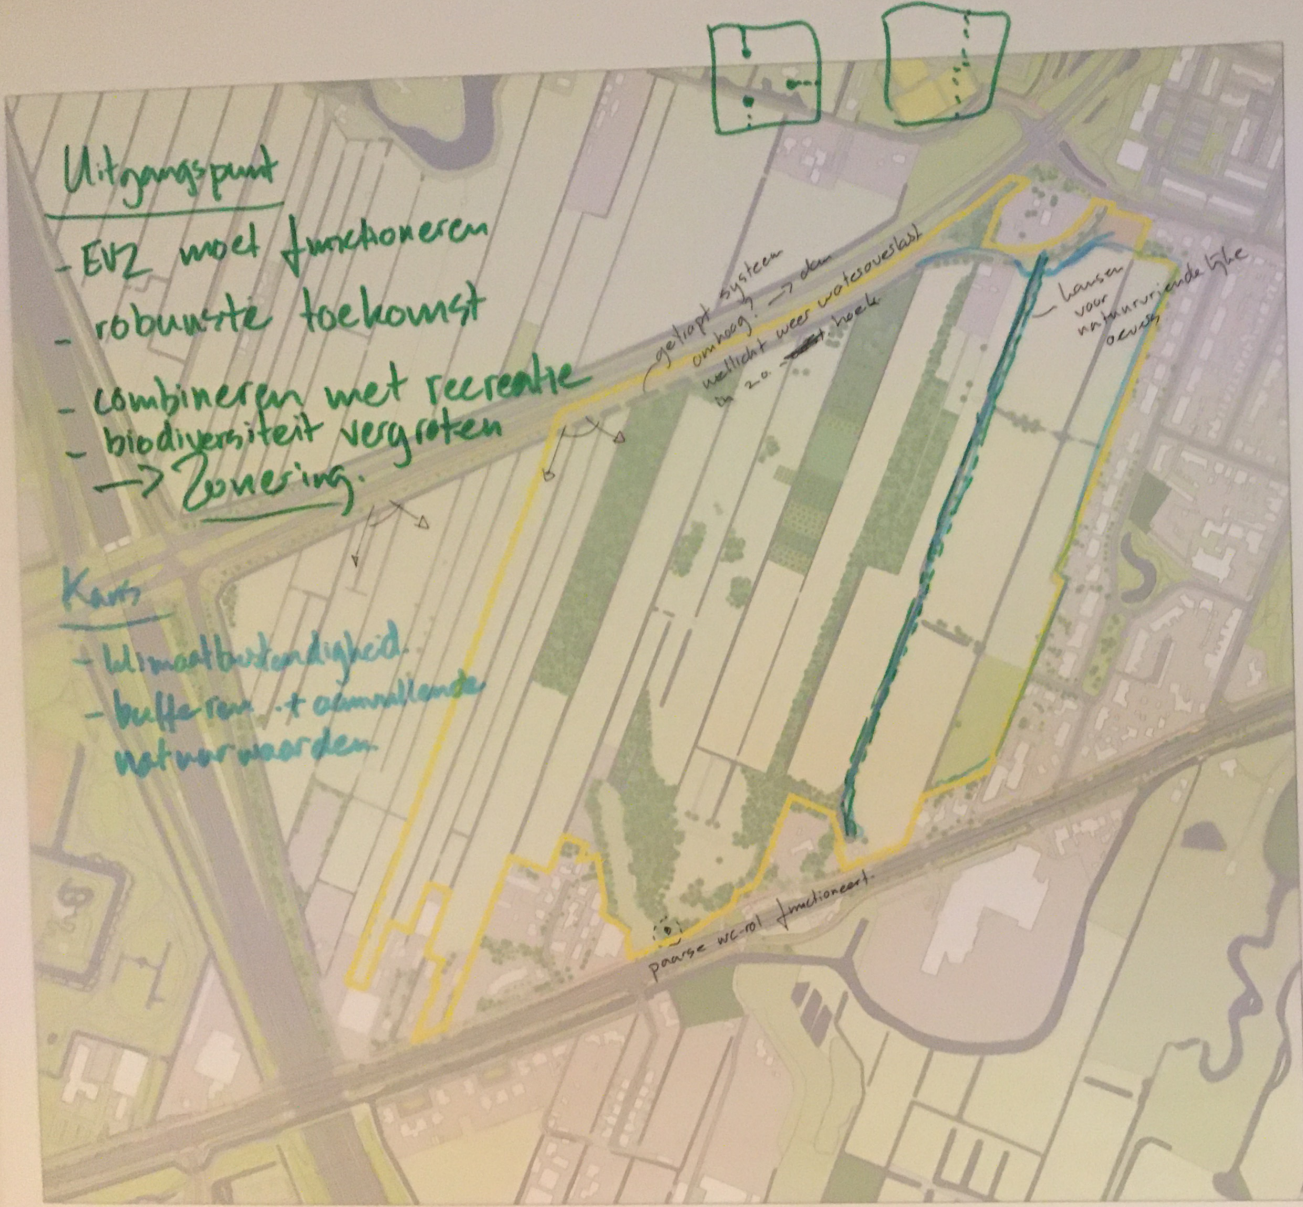 Uitgangspunt
- EVZ moet functioneren
- robuuste toekomst
- combineren met recreatie
- biodiversiteit vergroten
→ Zonering.
Kans
- klimaatbestendigheid.
- bufferen + aanvullende
natuurwaarden.
getrapt systeem
omhoog? → dan
wellicht weer wateroverlast
in z.o. hoek
kansen
voor
natuurvriendelijke
oevers
paarse wc-rol functioneert.